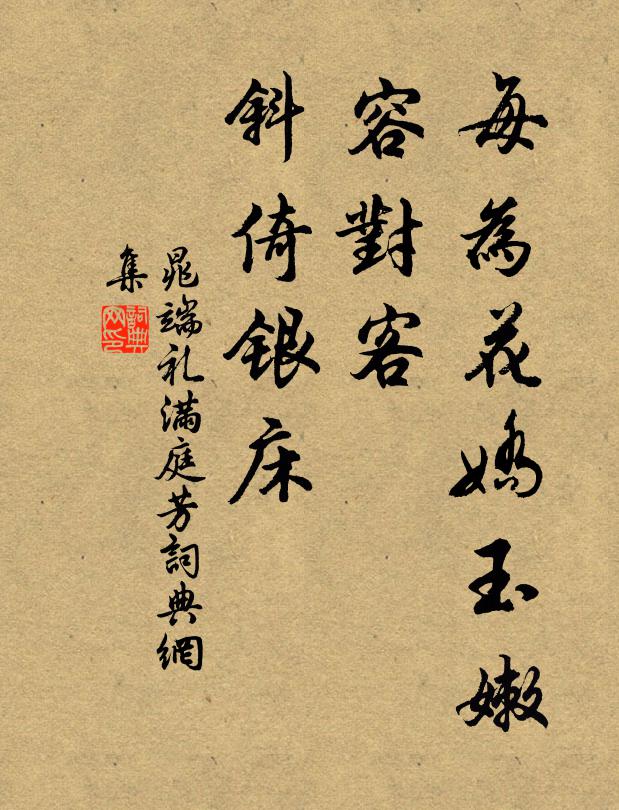 每為花嬌玉嫩
容對客
斜倚銀床
晁端礼滿庭芳詞典網
集
詞典
网印